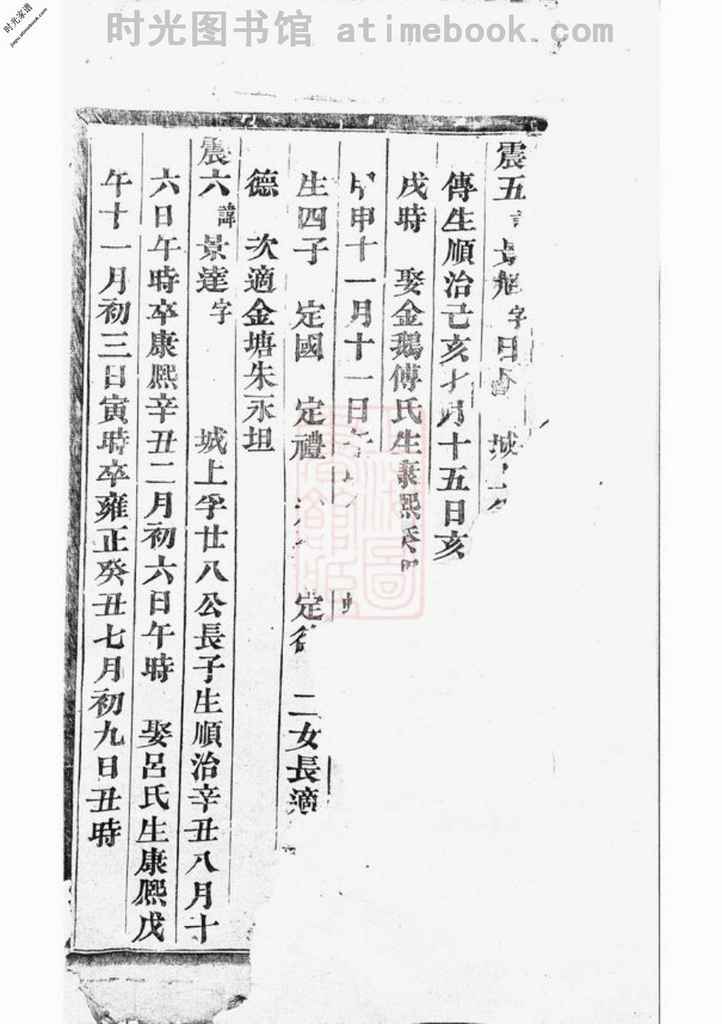 时光图书馆 atimebook.com
时光家谱
jiapu.atimebook.com
震五 字日 城
傳生順治己亥 月十五日亥
戌時 娶金鵝傅氏生康熙癸
甲申十一月十一日
生四子 定國 定禮 定 二女長適
德 次適金塘朱永坦
震六諱景達字 城上孚廿八公長子生順治辛丑八月十
六日午時卒康熙辛丑二月初六日午時 娶呂氏生康熙戊
午十一月初三日寅時卒雍正癸丑七月初九日丑時